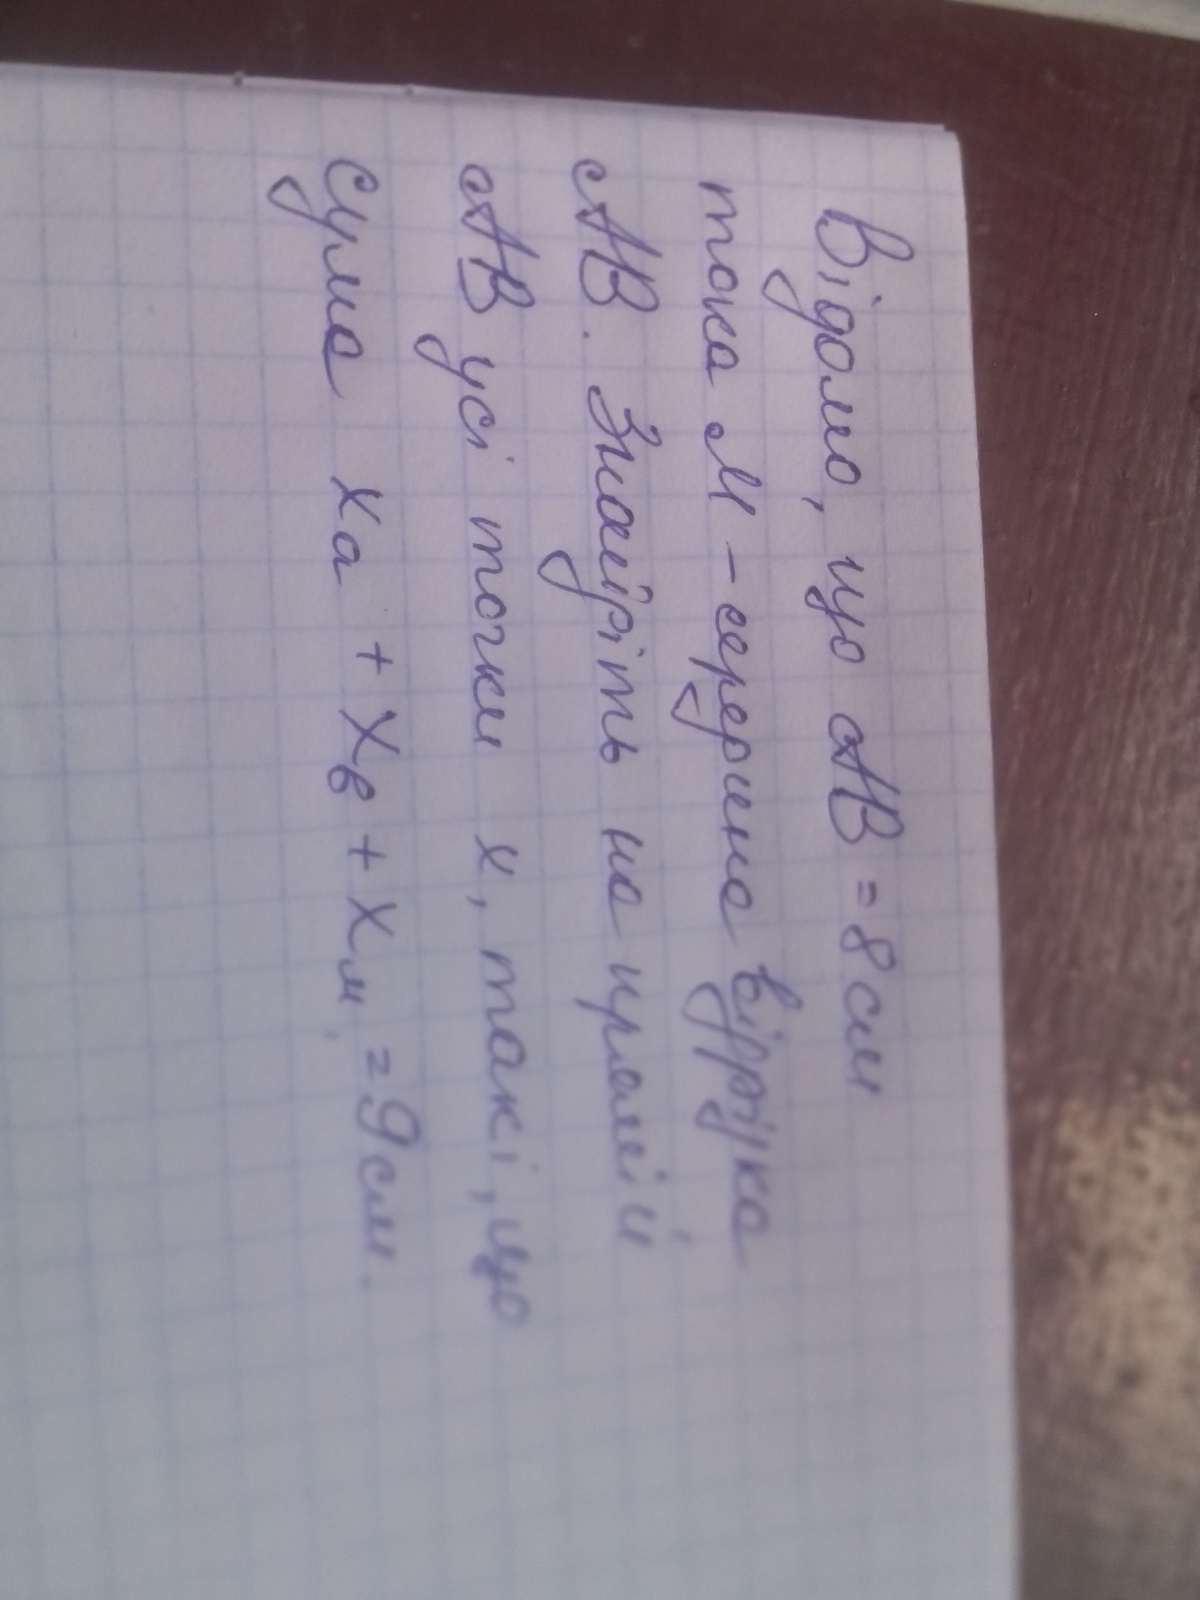 Відомо, що AB = 8 см
тока M - середина відрізка
AB. Знайдіть на прямій
AB усі точки x, такі, що
сума xa + xв + xм = 9 см.